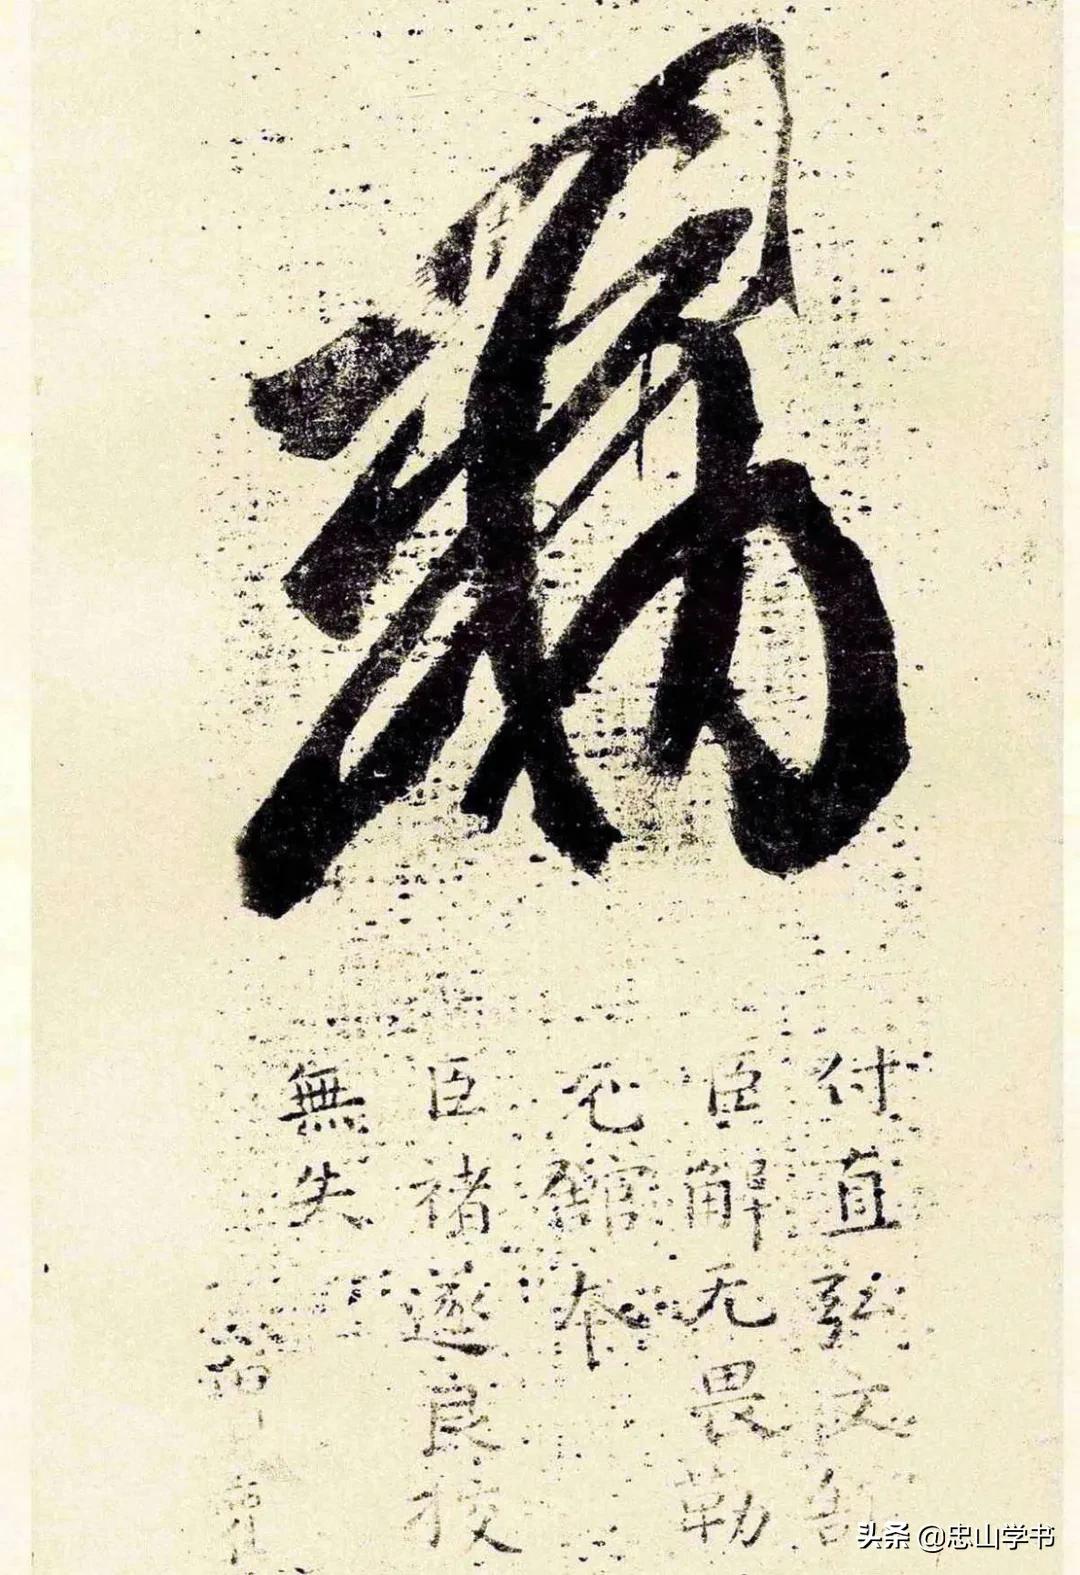 敕
付直弘文館
臣解无畏勒
充館本
臣褚遂良挍
無失
头条 @忠山学书